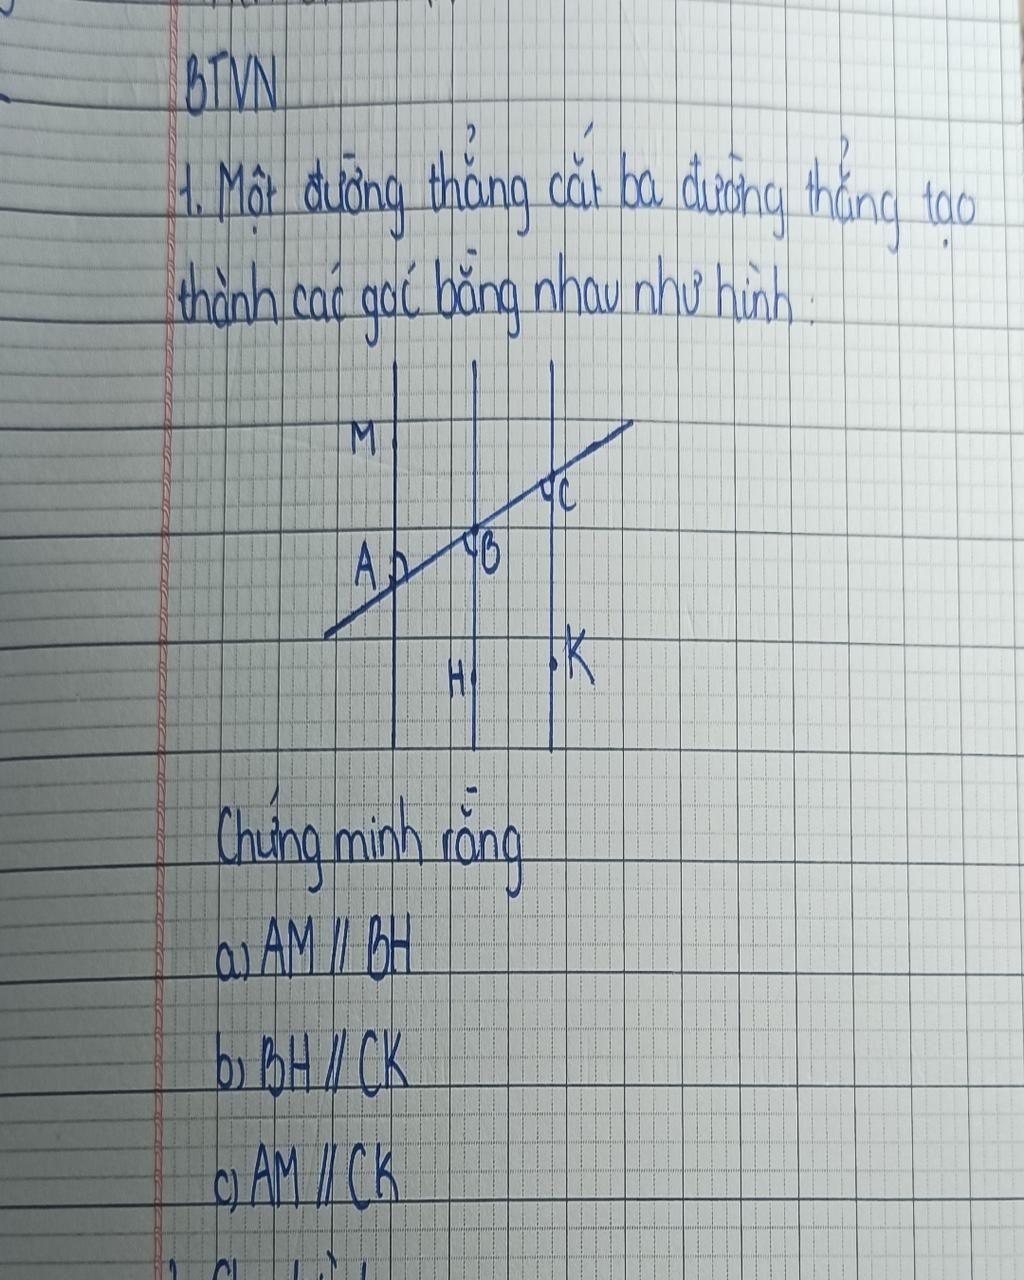 BTVN
1. Một đường thẳng cắt ba đường thẳng tạo
thành các góc bằng nhau như hình.
M
C
A
B
K
H
Chứng minh rằng
a) AM // BH
b) BH // CK
c) AM // CK